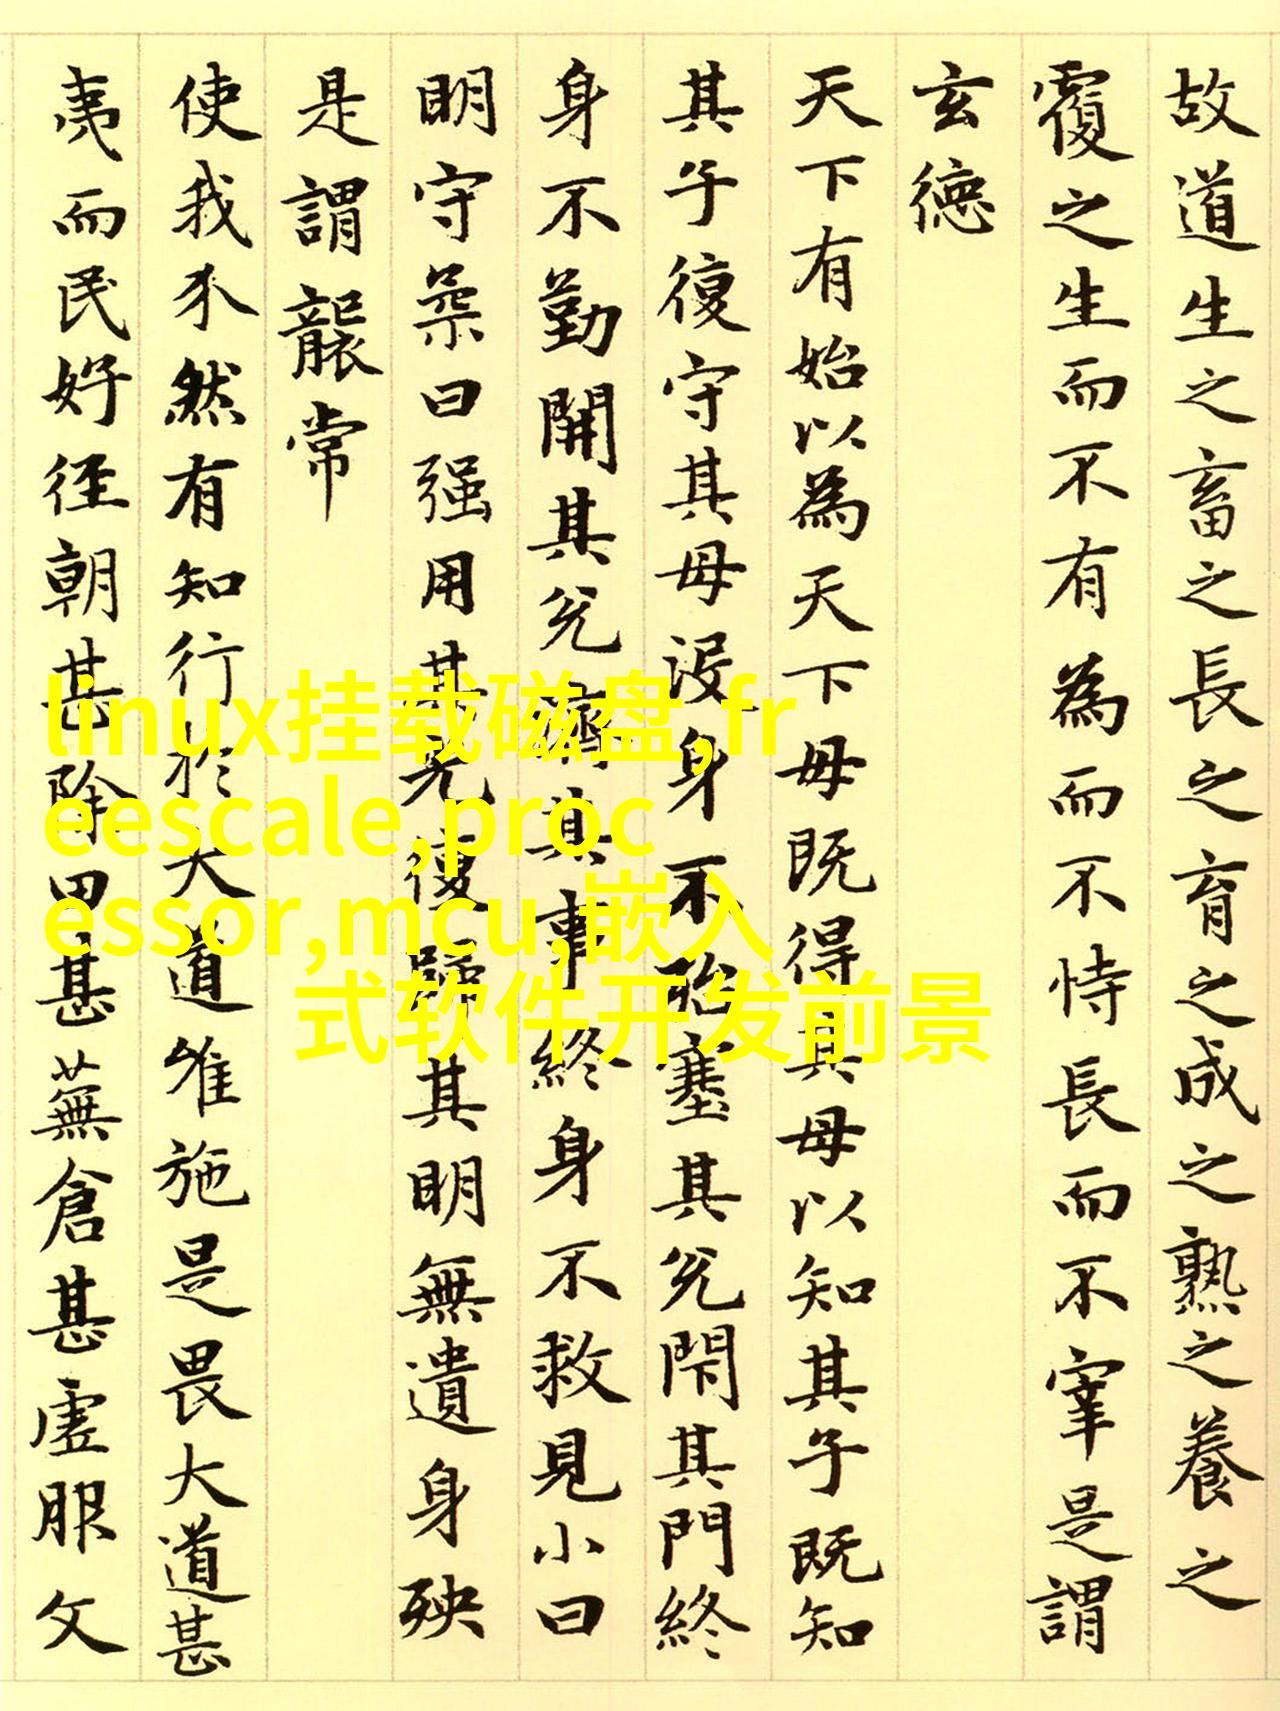 故道生之畜之長之育之成之熟之養之
覆之生而不有為而不恃長而不宰是謂
玄德
天下有始以為天下母既得其母以知其子既知
其子復守其母沒身不殆塞其兌閇其門終
身不勤開其兌濟其事終身不救見小曰
明守柔曰强用其光復歸其明無遺身殃
是謂襲常
使我介然有知行於大道唯施是畏大道甚
夷而民好徑朝甚除田甚蕪倉甚虛服文
linux挂载磁盘,fr
eescale,proc
essor,mcu,嵌入
式软件开发前景